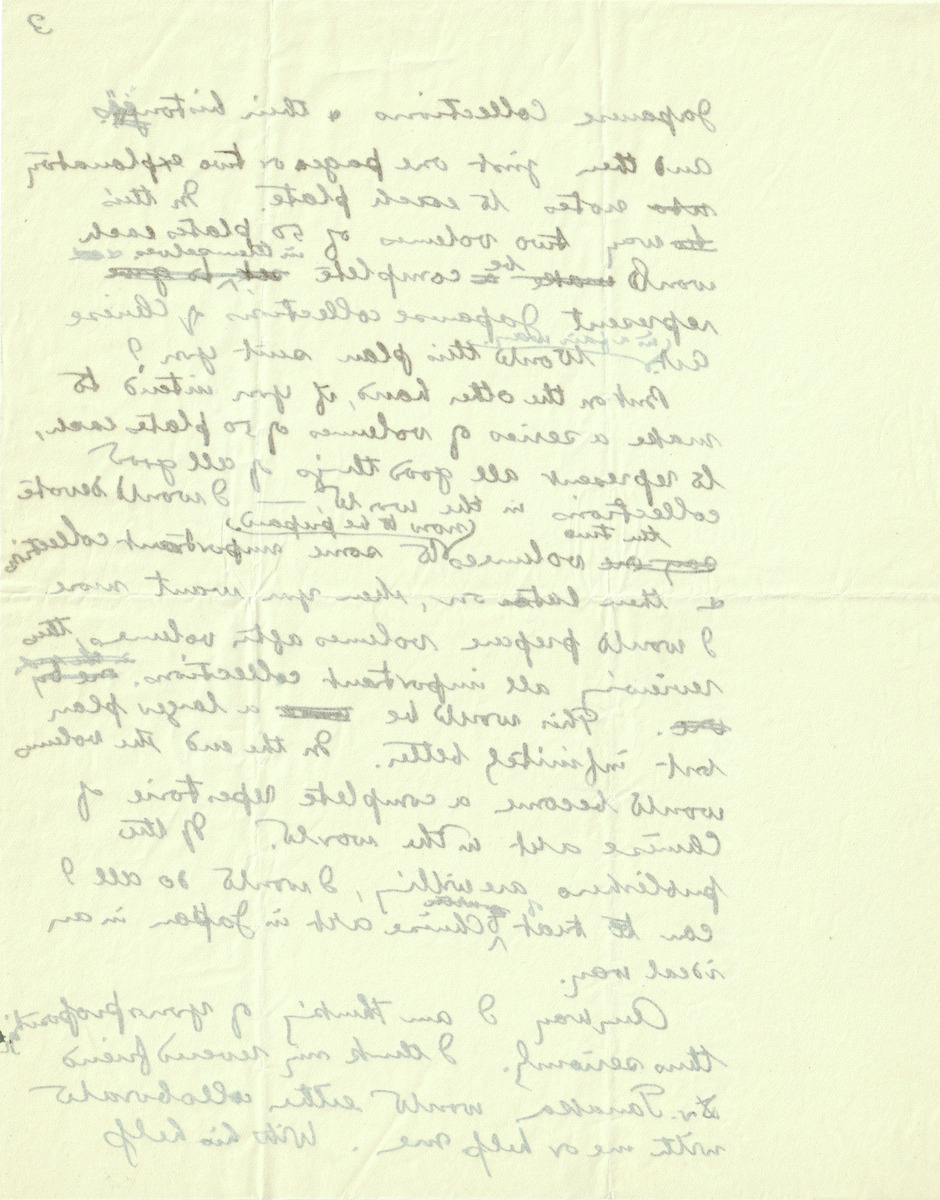 3
Japanese Collections & their histories.
and then just one pages or two explanatory
notes to each plate. In this
way two volumes of 50 plates each
would make a be complete in themselves set to give
represent Japanese collections of Chinese
art in a fair way. Would this plan suit you?
But on the other hand, if you intend to
make a series of volumes of 50 plates each,
to represent all good things of all good
collections in the world — I would devote
(now to be prepared)
say one the two volumes to some important collections
& then later on, when you want more
I would prepare volumes after volumes, thus
reviewing all important collections. one by
one. This would be a larger plan
but infinitely better. In the end the volumes
would become a complete repertoire of
Chinese art in the world. If the
publishers are willing, I would do all I
can to treat Chinese art in Japan in an
ideal way.
Anyway I am thinking of your proposition
thus seriously. I think my revered friend
Dr. Tanaka would either collaborate
with me or help me. With his help